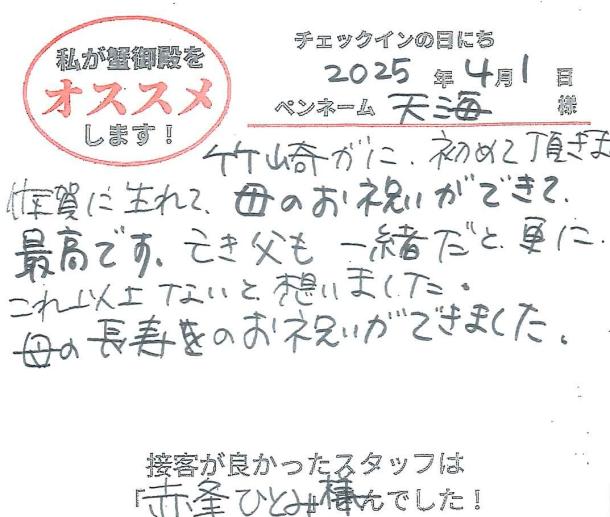 私が蟹御殿を
オススメ
します!
チェックインの日にち
2025年4月1日
ペンネーム 天海 様
竹崎がに、初めて頂きま
佐賀に生れて、母のお祝いができて、
最高です。亡き父も一緒だと、更に、
これ以上ないと想いました。
母の長寿をのお祝いができました。
接客が良かったスタッフは
「赤峯ひとみ様んでした!